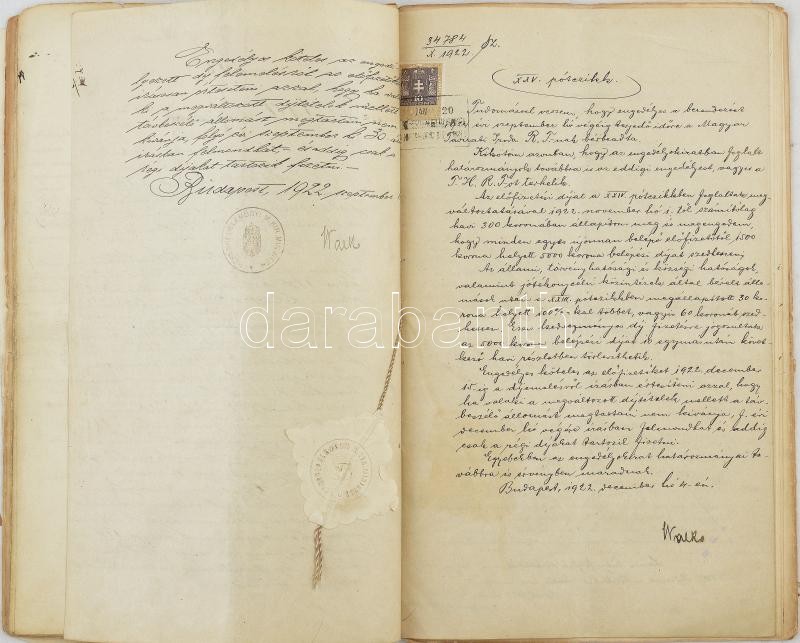 Engedélyes köteles az enged-
lyezett díj felemeléséről az előfizetőket
írásban értesíteni azzal, hogy ha vala-
ki a megváltozott díjtételek mellett
távbeszélő állomást megtartani nem
kívánja, folyó év szeptember hó 30-ig
írásban felmondhat és addig csak a
régi díjakat tartozik fizetni.
Budapest, 1922. szeptember
Walko
34784
X. 1922 / sz.
XXV. pótczikk.
20
Tudomásul veszem, hogy engedélyes a berendezést
év szeptember hó végéig terjedő időre a Magyar
Távirati Iroda R. T.-nak bérbeadta.
Kikötöm azonban, hogy az engedélyokiratban foglalt
határozmányok továbbra is az eddigi engedélyest, vagyis a
T. H. R. T.-ot terhelik.
Az előfizetési díjat a XXIV. pótczikkben foglaltak meg-
változtatásával 1922. november hó 1. től számítólag
havi 300 koronában állapítom meg és megengedem,
hogy minden egyes újonnan belépő előfizetőtől, 1500
korona helyett 5000 korona belépési díjat szedhessen.
Az állami, törvényhatósági és községi hatóságok,
valamint jótékonycélú közintézetek által bérelt állo-
mások után a XXIII. pótczikkben megállapított 30 ko-
rona helyett 100%-kal többet, vagyis 60 koronát szed-
hessen. Ezen kedvezményes díj fizetésre jogosultak
az 5000 korona belépési díjat 10 egymásután követ-
kező havi részletben törleszthetik.
Engedélyes köteles az előfizetőket 1922. december
15-ig a díjemelésről írásban értesíteni azzal, hogy
ha valaki a megváltozott díjtételek mellett a táv-
beszélő állomást megtartani nem kívánja, f. évi
december hó végére írásban felmondhat és addig
csak a régi díjakat tartozik fizetni.
Egyebekben az engedélyokirat határozmányai to-
vábbra is érvényben maradnak.
Budapest, 1922. december hó 4-én.
Walko
darabanth